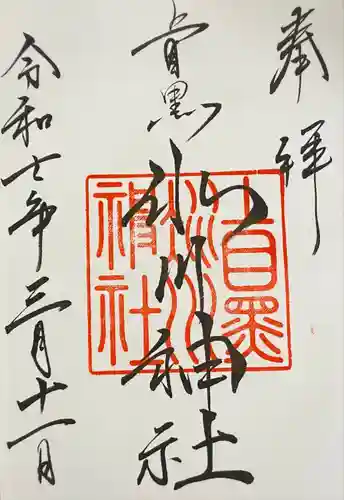 奉拝
上目黒
氷川神社
令和七年三月十一日
上目黒
氷川
神社